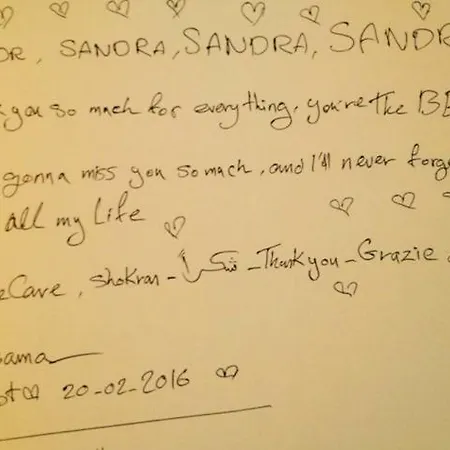 OR, SANDRA, SANDRA, SANDR
you so much for everything, you're the BE
gonna miss you so much, and I'll never forge
all my Life
Care, shokran - شكراً - Thank you - Grazie
sama
20-02-2016